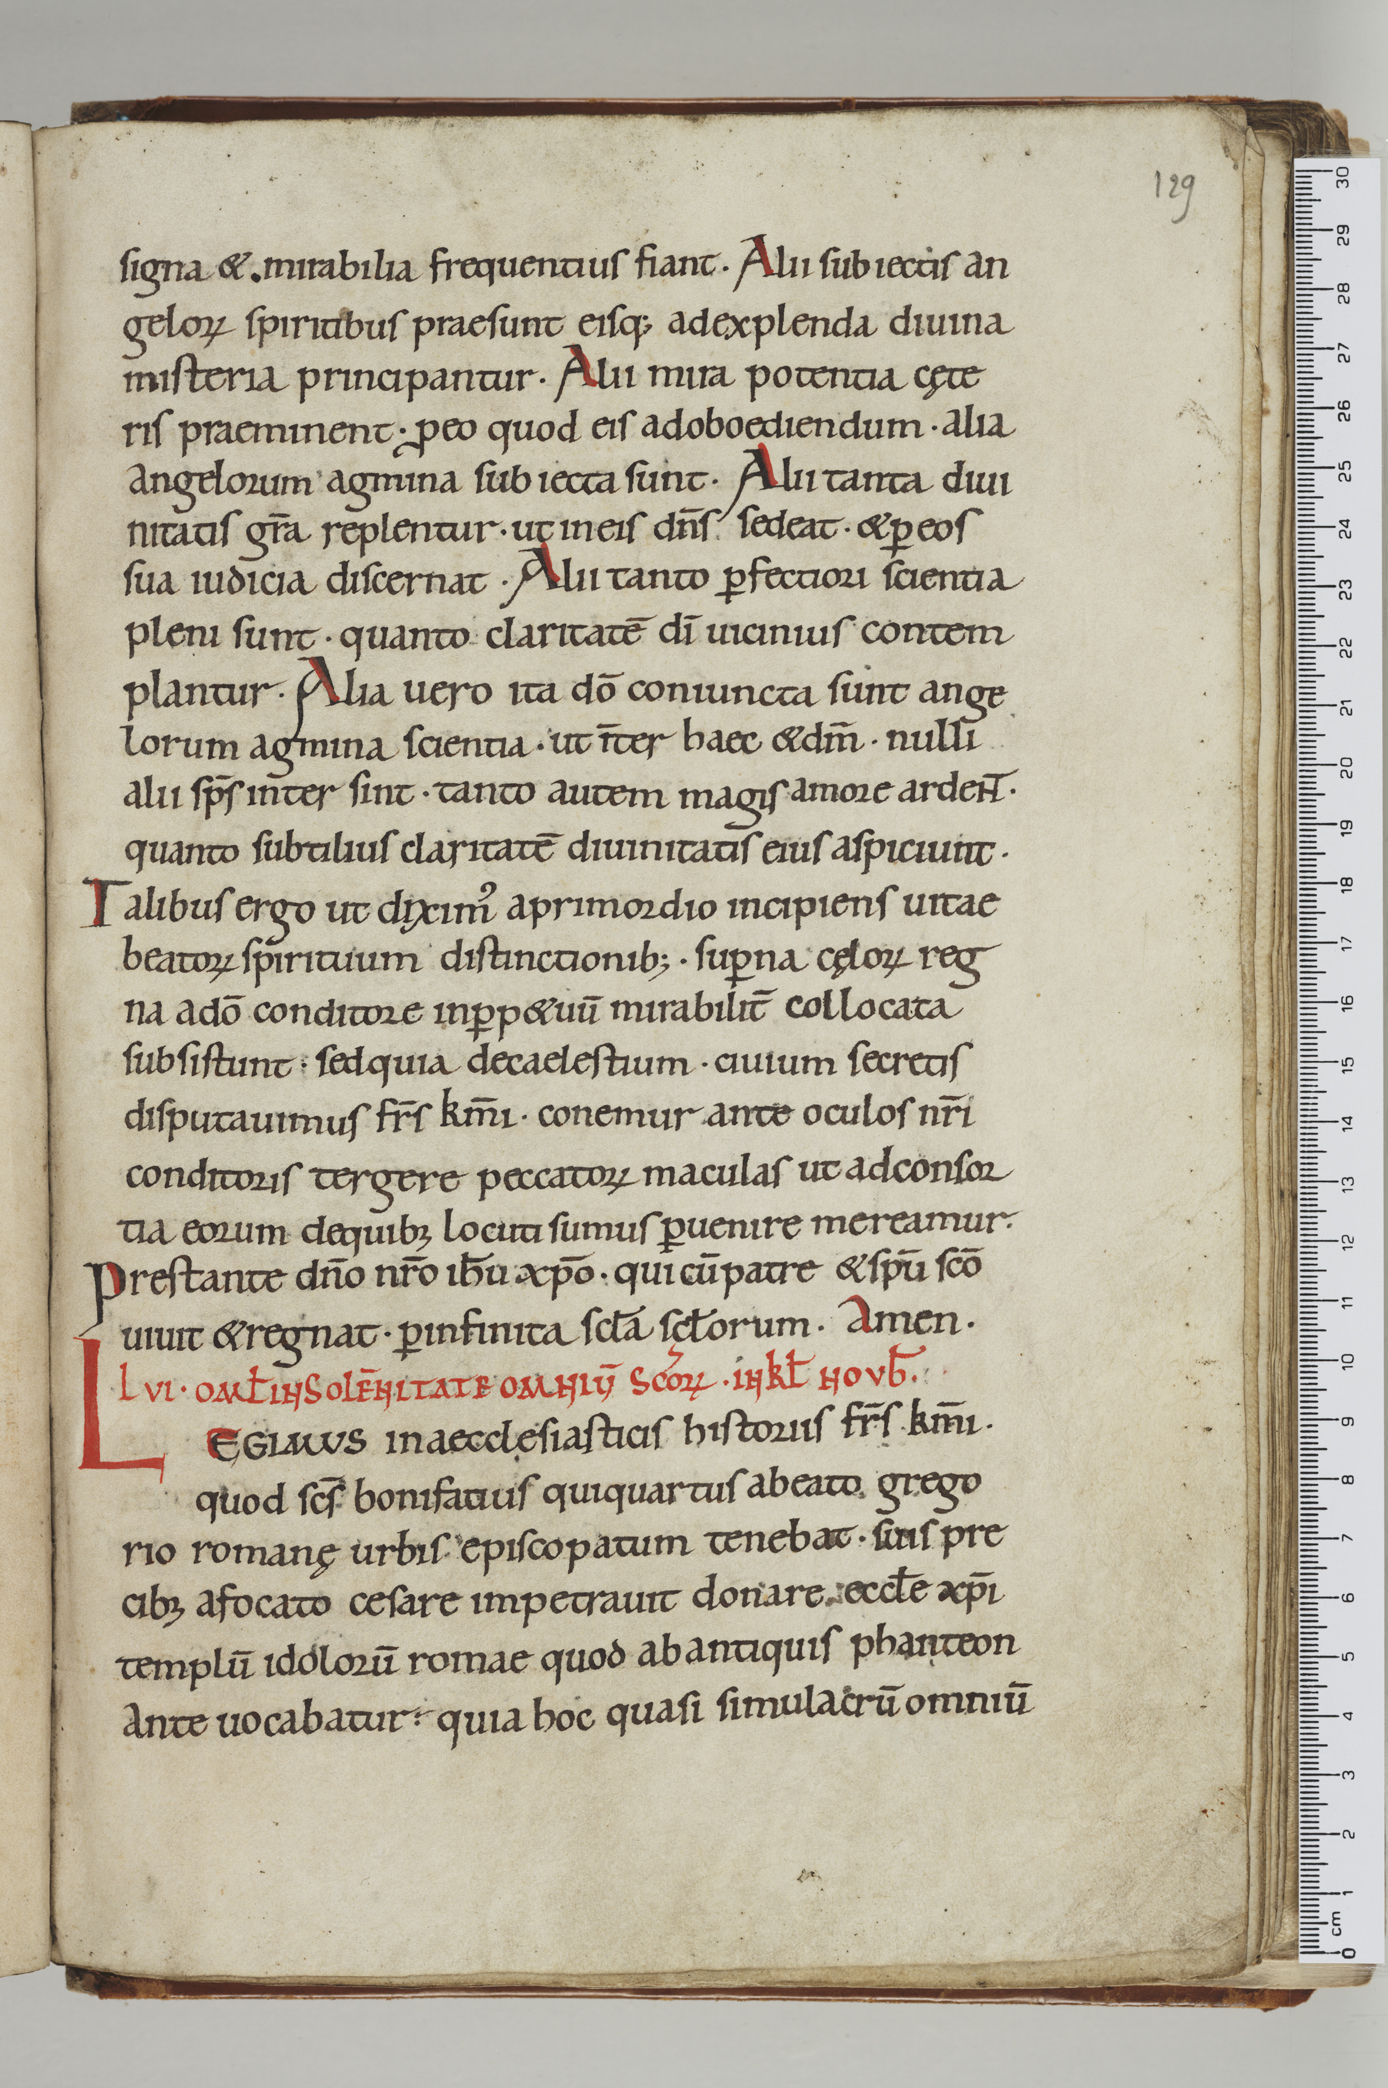 129
signa &. mirabilia frequentius fiant. Alii subiectis an
geloꝝ spiritibus praesunt eisq; adexplenda diuina
misteria principantur. Alii mira potentia cęte
ris praeminent. ꝓeo quod eis adoboediendum. alia
angelorum agmina subiecta sunt. Alii tanta diui
nitatis gr̄a replentur. ut ineis dn̄s sedeat. &ꝑeos
sua iudicia discernat. Alii tanto ꝑfectiori scientia
pleni sunt. quanto claritatē dī uicinius contem
plantur. Alia uero ita dō coniuncta sunt ange
lorum agmina scientia. ut īter haec &dm̄. nulli
alii sp̄s inter sint. tanto autem magis amore ardeNT̄.
quanto subtilius claritatē diuinitatis eius aspiciunt.
Talibus ergo ut diximꝰ aprimordio incipiens uitae
beatoꝝ spirituum distinctionib;. suꝑna cęloꝝ reg
na adō conditore inꝑp&uū mirabilit̄ collocata
subsistunt. sedquia decaelestium. ciuium secretis
disputauimus fr̄s km̄i. conemur ante oculos nr̄i
conditoris tergere peccatoꝝ maculas ut adconsor
tia eorum dequibꝫ locuti sumus ꝑuenire mereamur.
Prestante dn̄o nr̄o ih̄u xp̄o. qui cūpatre &spū scō
uiuit &regnat. ꝑinfinita scła scłorum. Amen.
LVI. OMEŁ INSOLĒNITATE OMNIŪ SCŌꝝ. INKŁ NOVB̄.
LEGIMUS inaecclesiasticis historiis fr̄s km̄i.
quod sc̄s bonifatius quiquartus abeato grego
rio romanę urbis episcopatum tenebat. suis pre
cibꝫ afocato cesare impetrauit donare eccłe xp̄i
templū idolorū romae quod abantiquis phanteon
ante uocabatur. quia hoc quasi simulacrū omniū